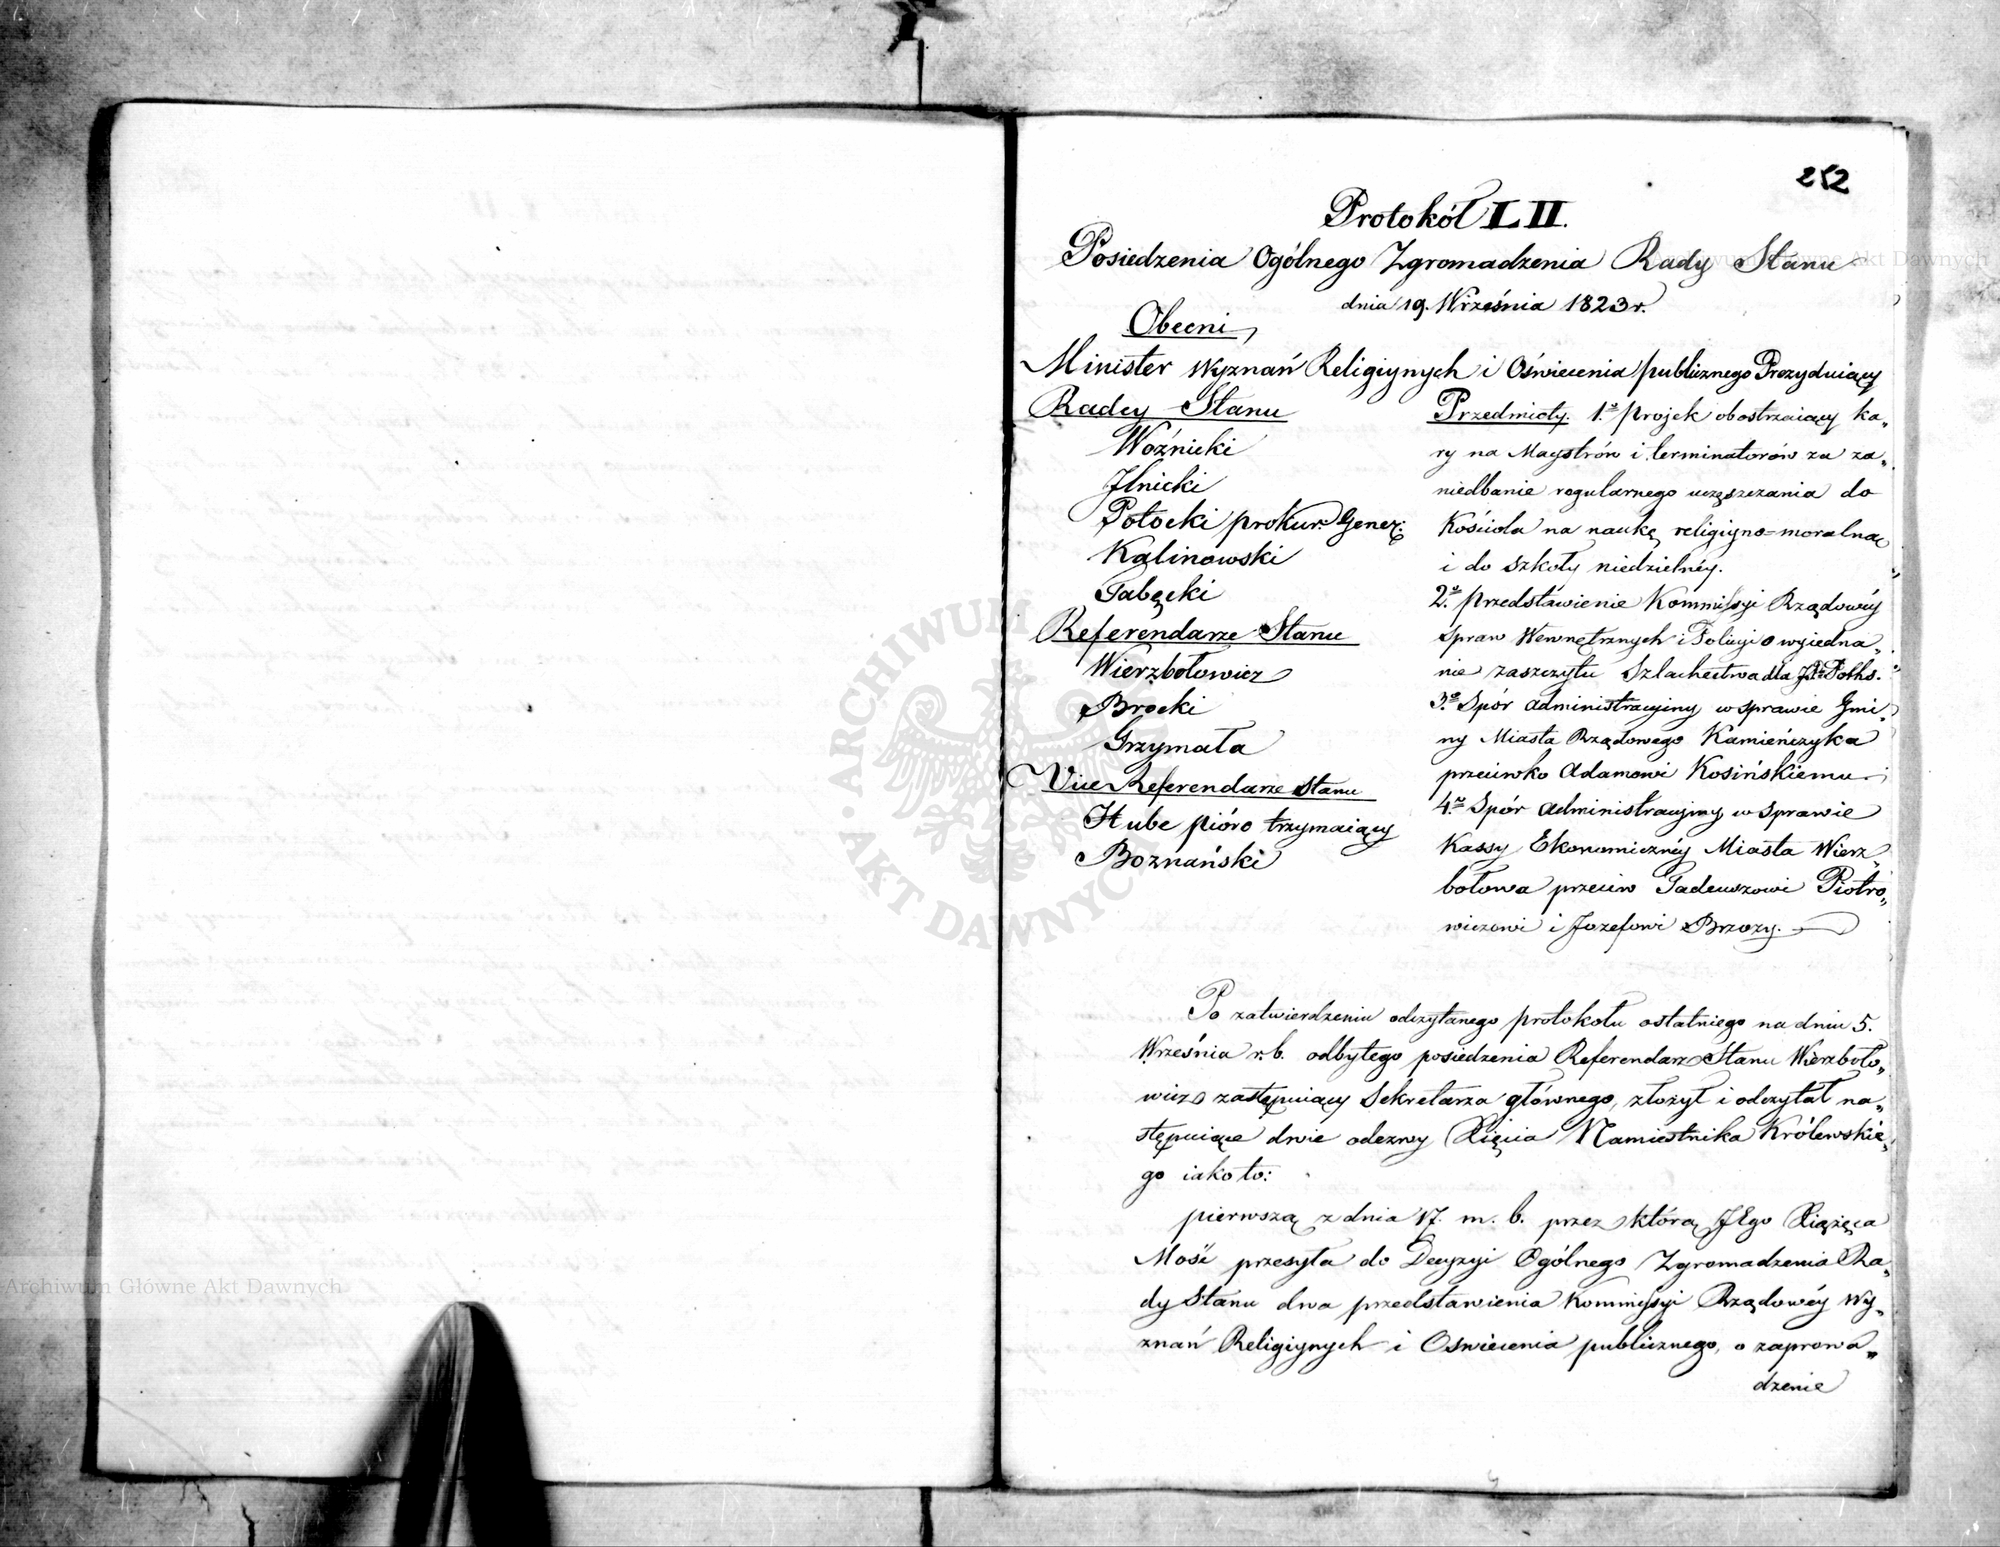 252
Protokół LII.
Posiedzenia Ogólnego Zgromadzenia Rady Stanu
dnia 19. Września 1823 r.
Obecni,
Minister Wyznań Religiynych i Oświecenia publicznego Prezyduiący
Radcy Stanu
Woźnicki
Ilnicki
Potocki prokur: Gener:
Kalinowski
Tabęcki
Referendarze Stanu
Wierzbołowicz
Brocki
Grzymała
Vice Referendarze Stanu
Hube pióro trzymaiący
Boznański
Przedmioty. 1.º projek obostrzaiący ka„
ry na Maystrów i terminatorów za za„
niedbanie regularnego uczęszczania do
Kościoła na naukę religiyno=moralną
i do szkoły niedzielnéy.
2.º przedstawienie Kommissyi Rządowéy
Spraw Wewnętrznych i Policyi o wyiedna„
nie zaszczytu Szlachectwa dla
3.º Spór administracyiny w sprawie Gmi„
ny Miasta Rządowego Kamieńczyka
przeciwko Adamowi Kosińskiemu
4.º Spór administracyiny w Sprawie
Kassy Ekonomicznéy Miasta Wierz„
bołowa przeciw Tadeuszowi Piotro„
wiczowi i Jozefowi Brzozy.
Po zatwierdzeniu odczytanego protokołu ostatniego na dniu 5.
Września r. b. odbytego posiedzenia Referendarz Stanu Wierzboło„
wicz zastępuiący Sekretarza głównego, złożył i odczytał na„
stępuiące dwie odezwy Xięcia Namiestnika Królewskie„
go iako to:
pierwszą z dnia 17. m. b. przez którą JEgo Xiążęca
Mość przesyła do Decyzyi Ogólnego Zgromadzenia Ra„
dy Stanu dwa przedstawienia Kommissyi Rządowéy Wy„
znań Religiynych i Oswiecenia publicznego, o zaprowa„
dzenie
Archiwum Główne Akt Dawnych
Archiwum Główne Akt Dawnych
ARCHIWUM GŁÓWNE · AKT DAWNYCH